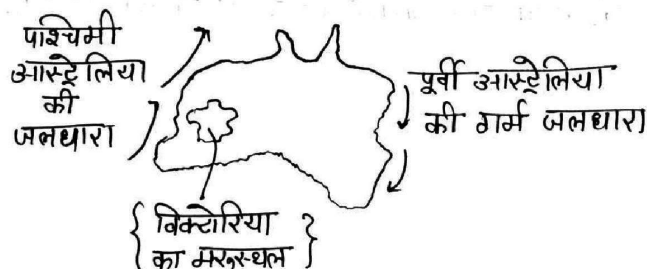 पश्चिमी
आस्ट्रेलिया
की
जलधारा
पूर्वी आस्ट्रेलिया
की गर्म जलधारा
{ विक्टोरिया
का मरुस्थल }